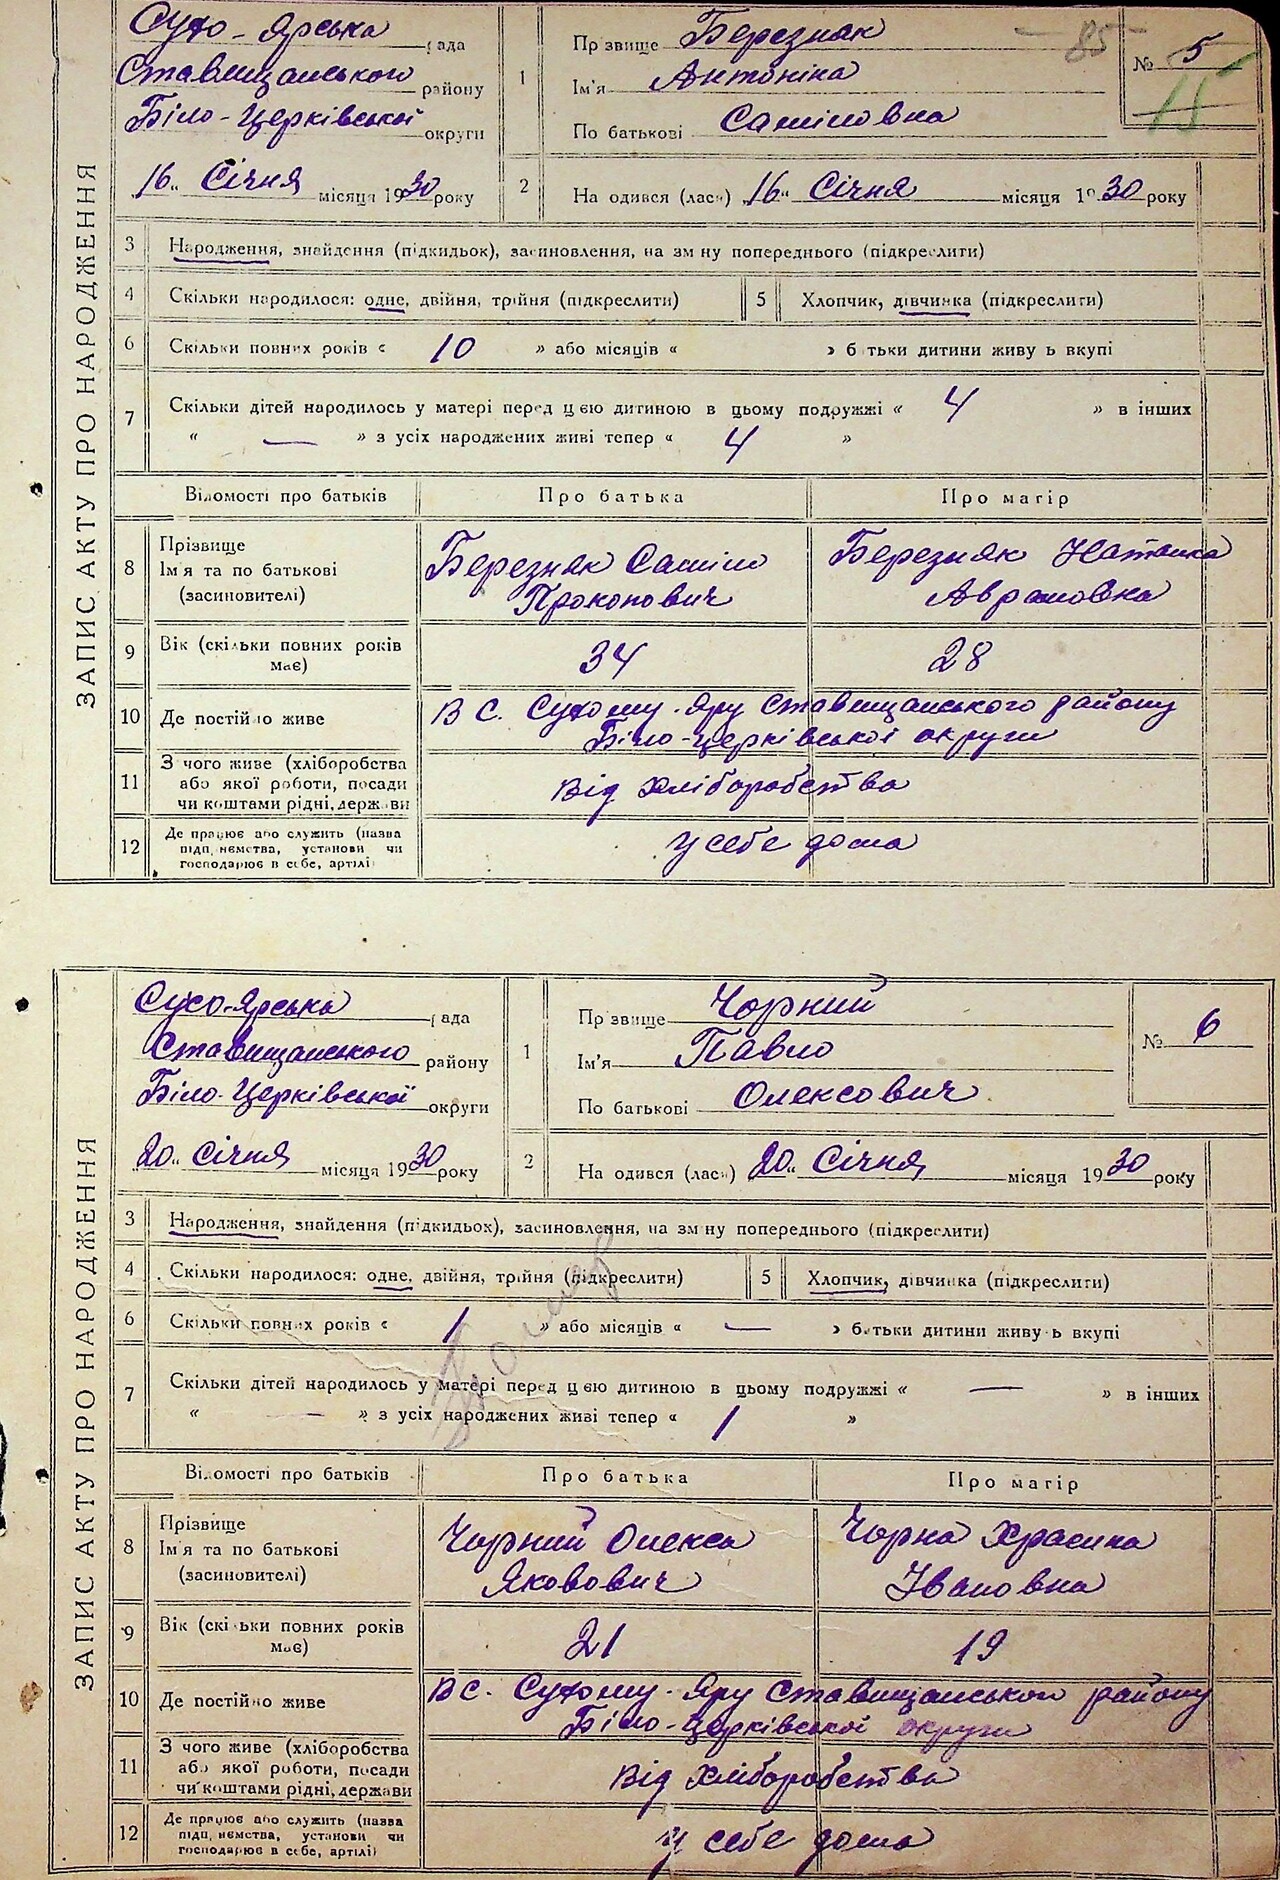 ЗАПИС АКТУ ПРО НАРОДЖЕННЯ
Сухо-Ярська рада
Ставищанського району
Біло-Церківської округи
16" Січня місяця 1930 року
1 Прізвище Березняк
Ім'я Антоніна
По батькові Самійловна
85
№ 5
15
2 Народився (лася) 16" Січня місяця 1930 року
3 Народження, знайдення (підкидьок), засиновлення, на зміну попереднього (підкреслити)
4 Скільки народилося: одне, двійня, трійня (підкреслити) 5 Хлопчик, дівчинка (підкреслити)
6 Скільки повних років « 10 » або місяців « » батьки дитини живуть вкупі
7 Скільки дітей народилось у матері перед цією дитиною в цьому подружжі « 4 » в інших
« — » з усіх народжених живі тепер « 4 »
Відомості про батьків Про батька Про матір
8 Прізвище
Ім'я та по батькові
(засиновителі)
Березняк
Прокопович
Березняк Наталка
Аврамовна
9 Вік (скільки повних років має) 34 28
10 Де постійно живе В с. Сухому-Яру Ставищанського району
Біло-Церківської округи
11 З чого живе (хліборобства
або якої роботи, посади
чи коштами рідні, держави
від хліборобства
12 Де працює або служить (назва
підприємства, установи чи
господарює в себе, артілі)
у себе дома
ЗАПИС АКТУ ПРО НАРОДЖЕННЯ
Сухо-Ярська рада
Ставищанського району
Біло-Церківської округи
20" Січня місяця 1930 року
1 Прізвище Чорний
Ім'я Павло
По батькові Олексович
№ 6
2 Народився (лася) 20" Січня місяця 1930 року
3 Народження, знайдення (підкидьок), засиновлення, на зміну попереднього (підкреслити)
4 Скільки народилося: одне, двійня, трійня (підкреслити) 5 Хлопчик, дівчинка (підкреслити)
6 Скільки повних років « 1 » або місяців « — » батьки дитини живуть вкупі
7 Скільки дітей народилось у матері перед цією дитиною в цьому подружжі « — » в інших
« — » з усіх народжених живі тепер « 1 »
Відомості про батьків Про батька Про матір
8 Прізвище
Ім'я та по батькові
(засиновителі)
Чорний Олекса
Якович
Чорна
Івановна
9 Вік (скільки повних років має) 21 19
10 Де постійно живе В с. Сухому-Яру Ставищанського району
Біло-Церківської округи
11 З чого живе (хліборобства
або якої роботи, посади
чи коштами рідні, держави
від хліборобства
12 Де працює або служить (назва
підприємства, установи чи
господарює в себе, артілі)
у себе дома